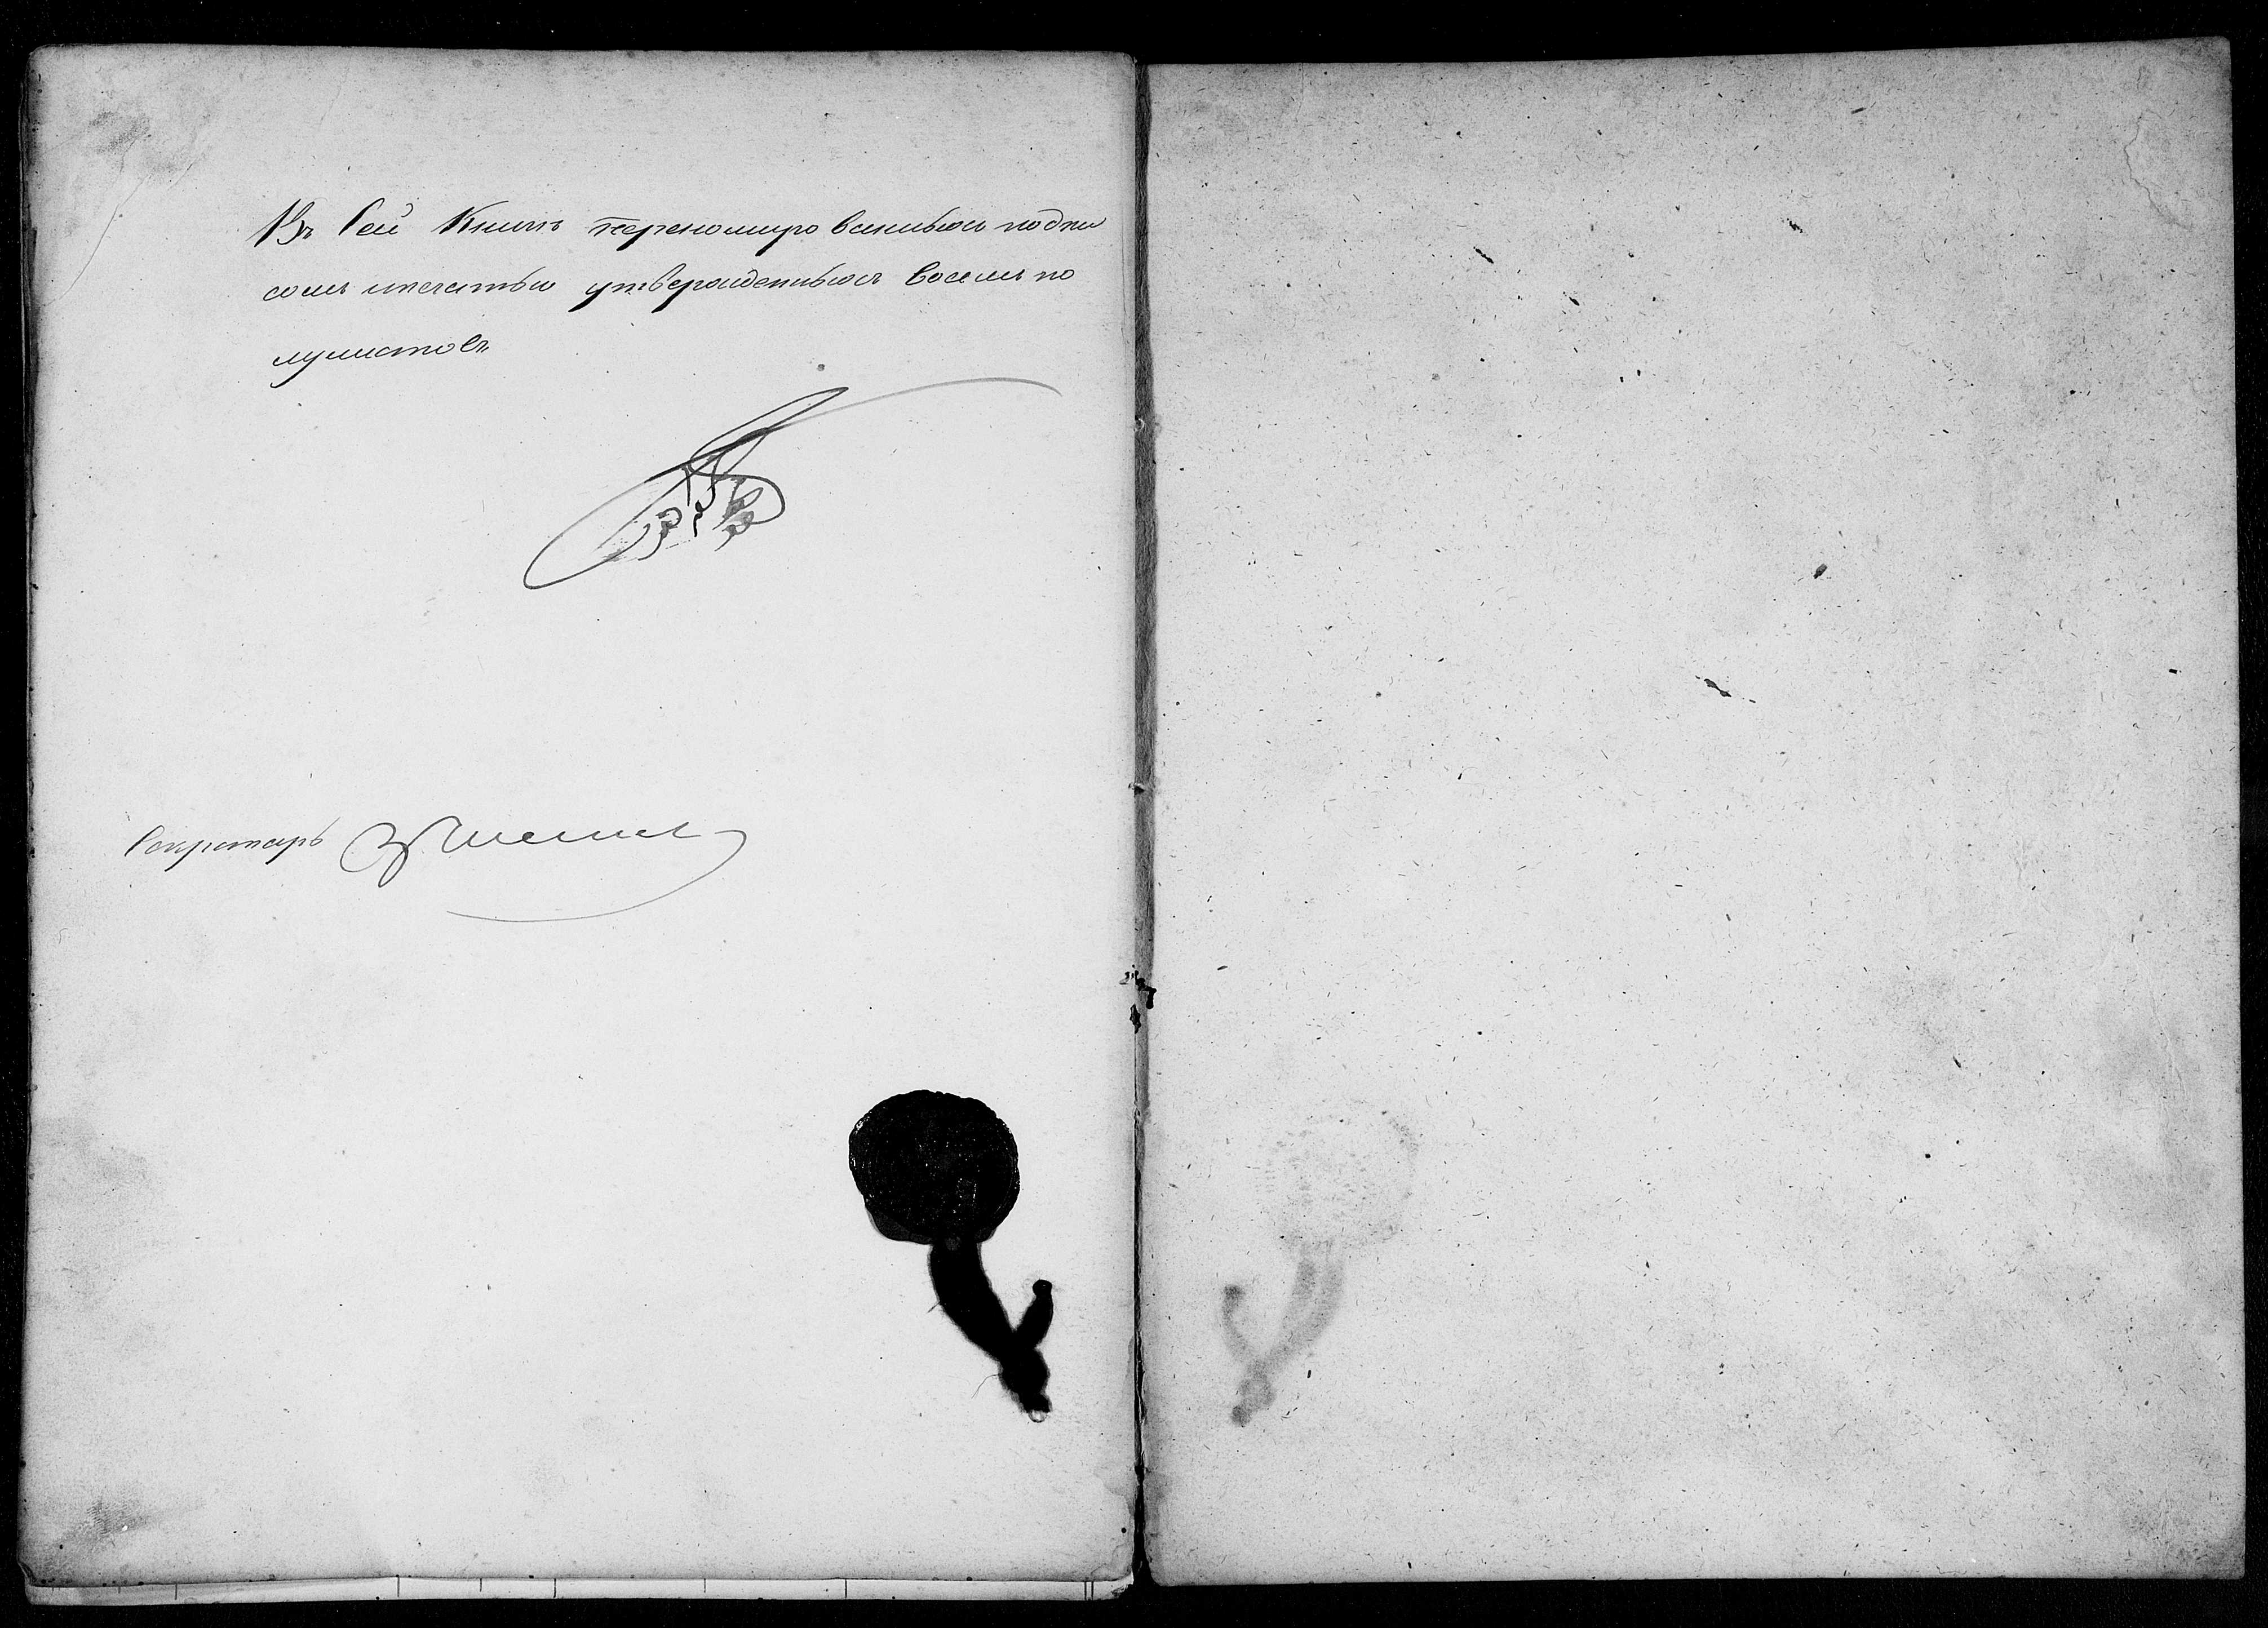 Въ Сей Книгѣ перенумерованныхъ подпи
сомъ ипечатью утвержденныхъ восемь по
лулистовъ
Секретарь